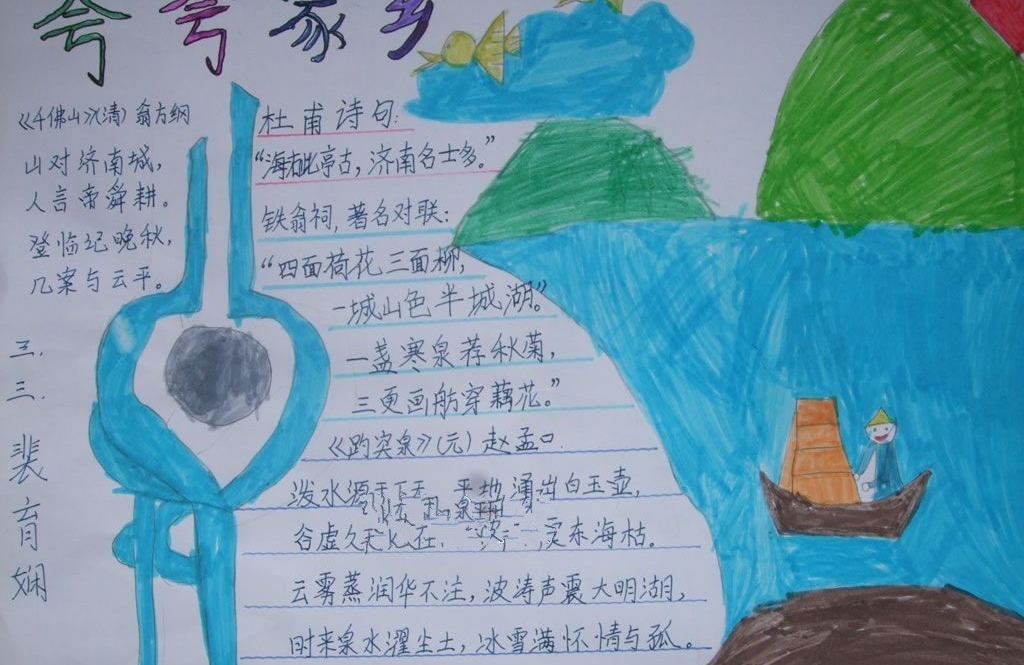 夸夸家乡
《千佛山》(清) 翁方纲
山对济南城，
人言帝舜耕。
登临纪晚秋，
几案与云平。
三.三.裴育娴
杜甫诗句：
“海右此亭古，济南名士多。”
铁翁祠，著名对联：
“四面荷花三面柳，
一城山色半城湖。”
一盏寒泉荐秋菊，
三更画舫穿藕花。”
《趵突泉》(元) 赵孟口.
泼水源 平地涌出白玉壶，
谷虚久 东海枯。
云雾蒸润华不注，波涛声震大明湖，
时来泉水濯尘土，冰雪满怀情与孤。